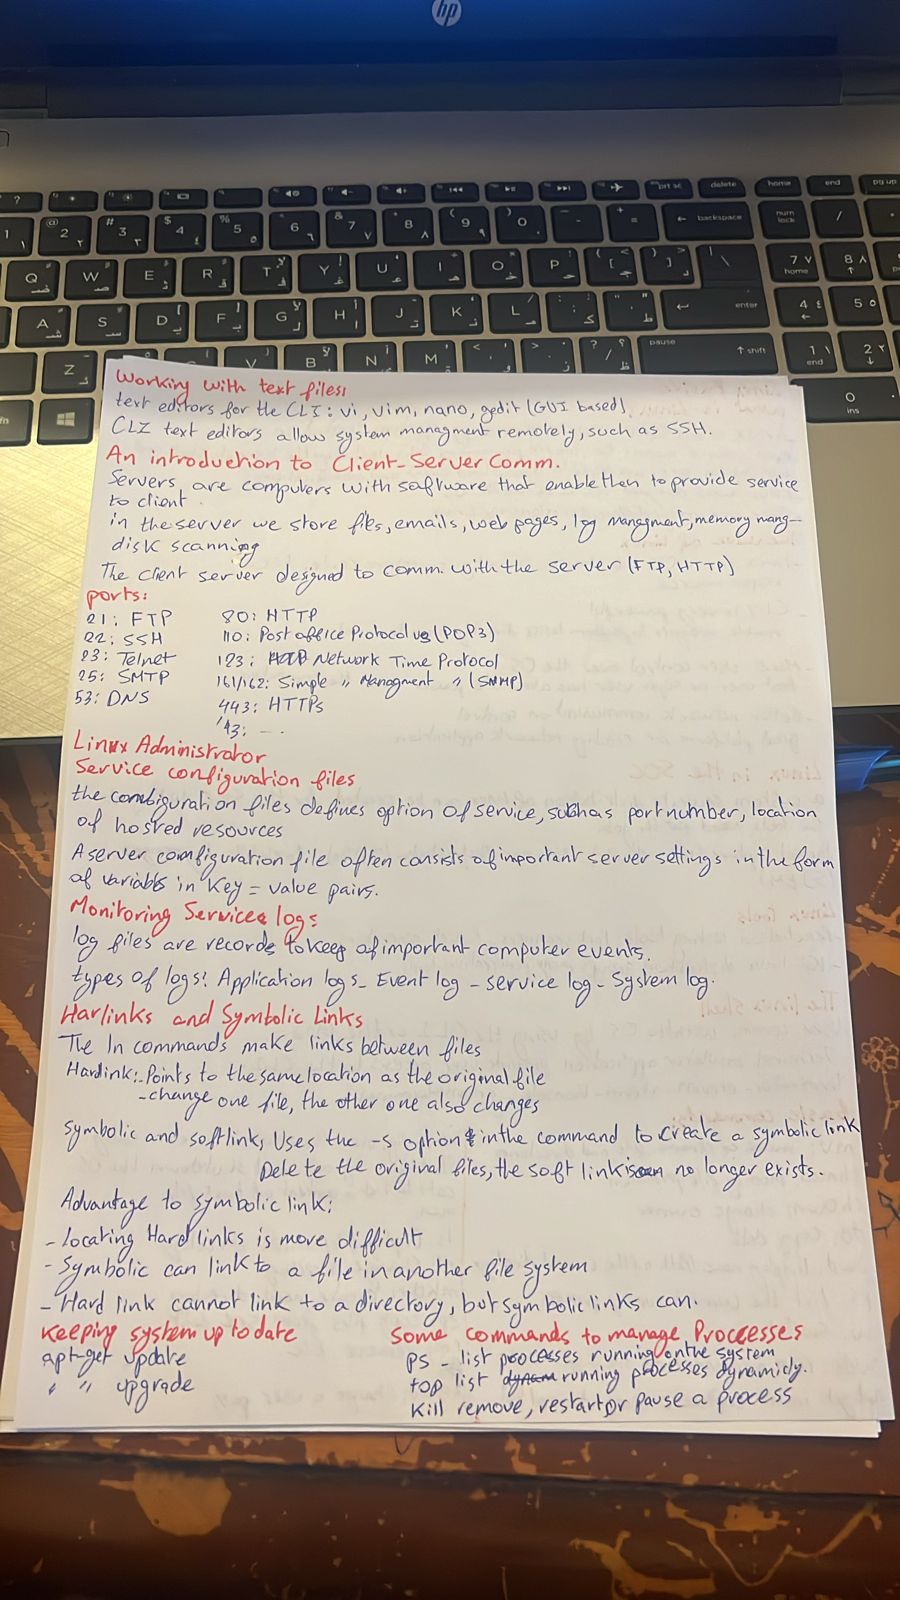 hp
prt sc
delete
home
end
pg up
backspace
num lock
enter
pause
shift
ins
Working with text files:
text editors for the CLI: vi, vim, nano, gedit (GUI based)
CLI text editors allow system managment remotely, such as SSH.
An introduction to Client-Server Comm.
Servers are computers with software that enable then to provide service
to client.
in the server we store files, emails, web pages, log managment, memory mang-
disk scanning
The client server designed to comm. with the server (FTP, HTTP)
ports:
21: FTP 80: HTTP
22: SSH 110: Post office Protocol v3 (POP3)
23: Telnet 123: Network Time Protocol
25: SMTP 161/162: Simple " Managment " (SNMP)
53: DNS 443: HTTPs
143: ...
Linux Administrator
Service configuration files
the configuration files defines option of service, such as port number, location
of hosted resources
A server configuration file often consists of important server settings in the form
of variables in key = value pairs.
Monitoring Service logs:
log files are records to keep of important computer events.
types of logs: Application logs - Event log - service log - System log.
Harlinks and Symbolic Links
The ln commands make links between files
Hardlink: - Points to the same location as the original file
- change one file, the other one also changes
Symbolic and softlink, Uses the -s option in the command to create a symbolic link
Delete the original files, the soft link no longer exists.
Advantage to symbolic link:
- locating Hard links is more difficult
- Symbolic can link to a file in another file system
- Hard link cannot link to a directory, but symbolic links can.
Keeping system up to date
apt-get update
" " upgrade
Some commands to manage Proccesses
ps - list processes running on the system
top list running processes dynamicly.
Kill remove, restart or pause a process